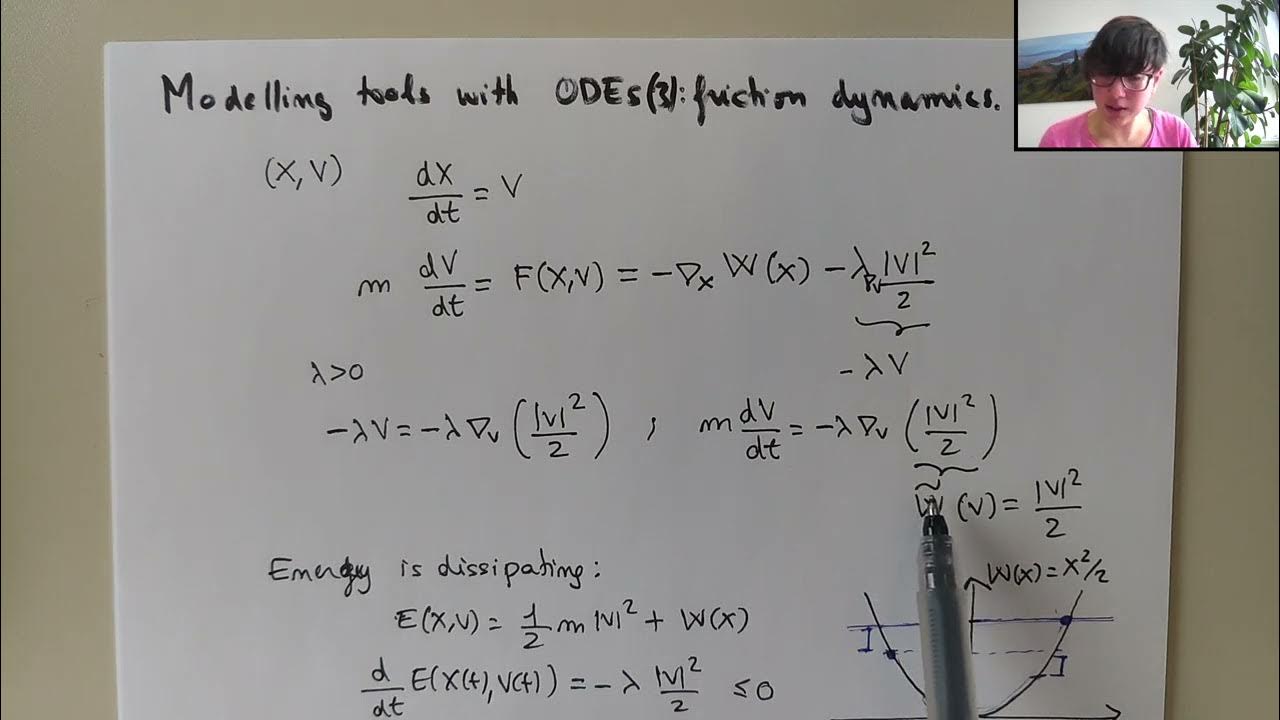 Modelling tools with ODEs(3): friction dynamics.
(X, V) dX/dt = V
m dV/dt = F(X,V) = -∇x W(x) - λ∇v |V|²/2
-λV
λ>0
-λV = -λ∇v (|V|²/2) ; m dV/dt = -λ∇v (|V|²/2)
W̃(V) = |V|²/2
Energy is dissipating:
W(x) = x²/2
E(X,V) = 1/2 m|V|² + W(X)
d/dt E(X(t),V(t)) = -λ |V|²/2 ≤ 0